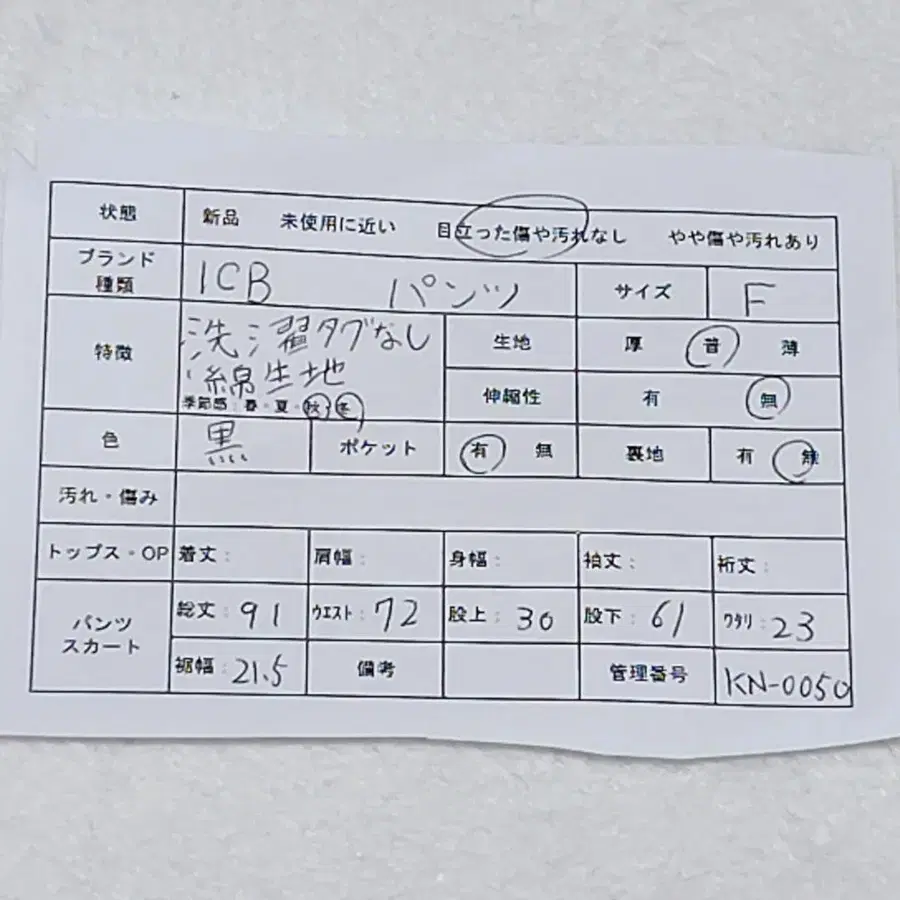 状態 新品 未使用に近い 目立った傷や汚れなし やや傷や汚れあり
ブランド 種類 ICB パンツ サイズ F
特徴 洗濯タグなし 生地 厚 普 薄
綿生地 伸縮性 有 無
季節感:春・夏・秋・冬
色 黒 ポケット 有 無 裏地 有 無
汚れ・傷み
トップス・OP 着丈: 肩幅: 身幅: 袖丈: 裄丈:
パンツ スカート 総丈:91 ウエスト:72 股上:30 股下:61 ワタリ:23
裾幅:21.5 備考 管理番号 KN-0050